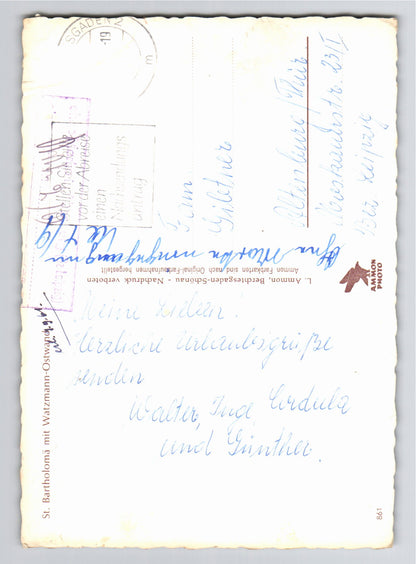 SGADEN 2
-19
m
vor der Abreise
einen
Nachsendungs
antrag
Fam
Güttner
Altenburg/Thür
Kossandstr. 23 II
Leipzig
Ohne Marke eingegangen
L. Ammon, Berchtesgaden-Schönau · Nachdruck verboten
Ammon Fertkarten sind nach Original-Farbaufnahmen hergestellt
AMMON
PHOTO
Meine Lieben.
Herzliche Urlaubsgrüße
senden
Walter, Inge Cordula
und Günther.
St. Bartholomä mit Watzmann-Ostwand
861